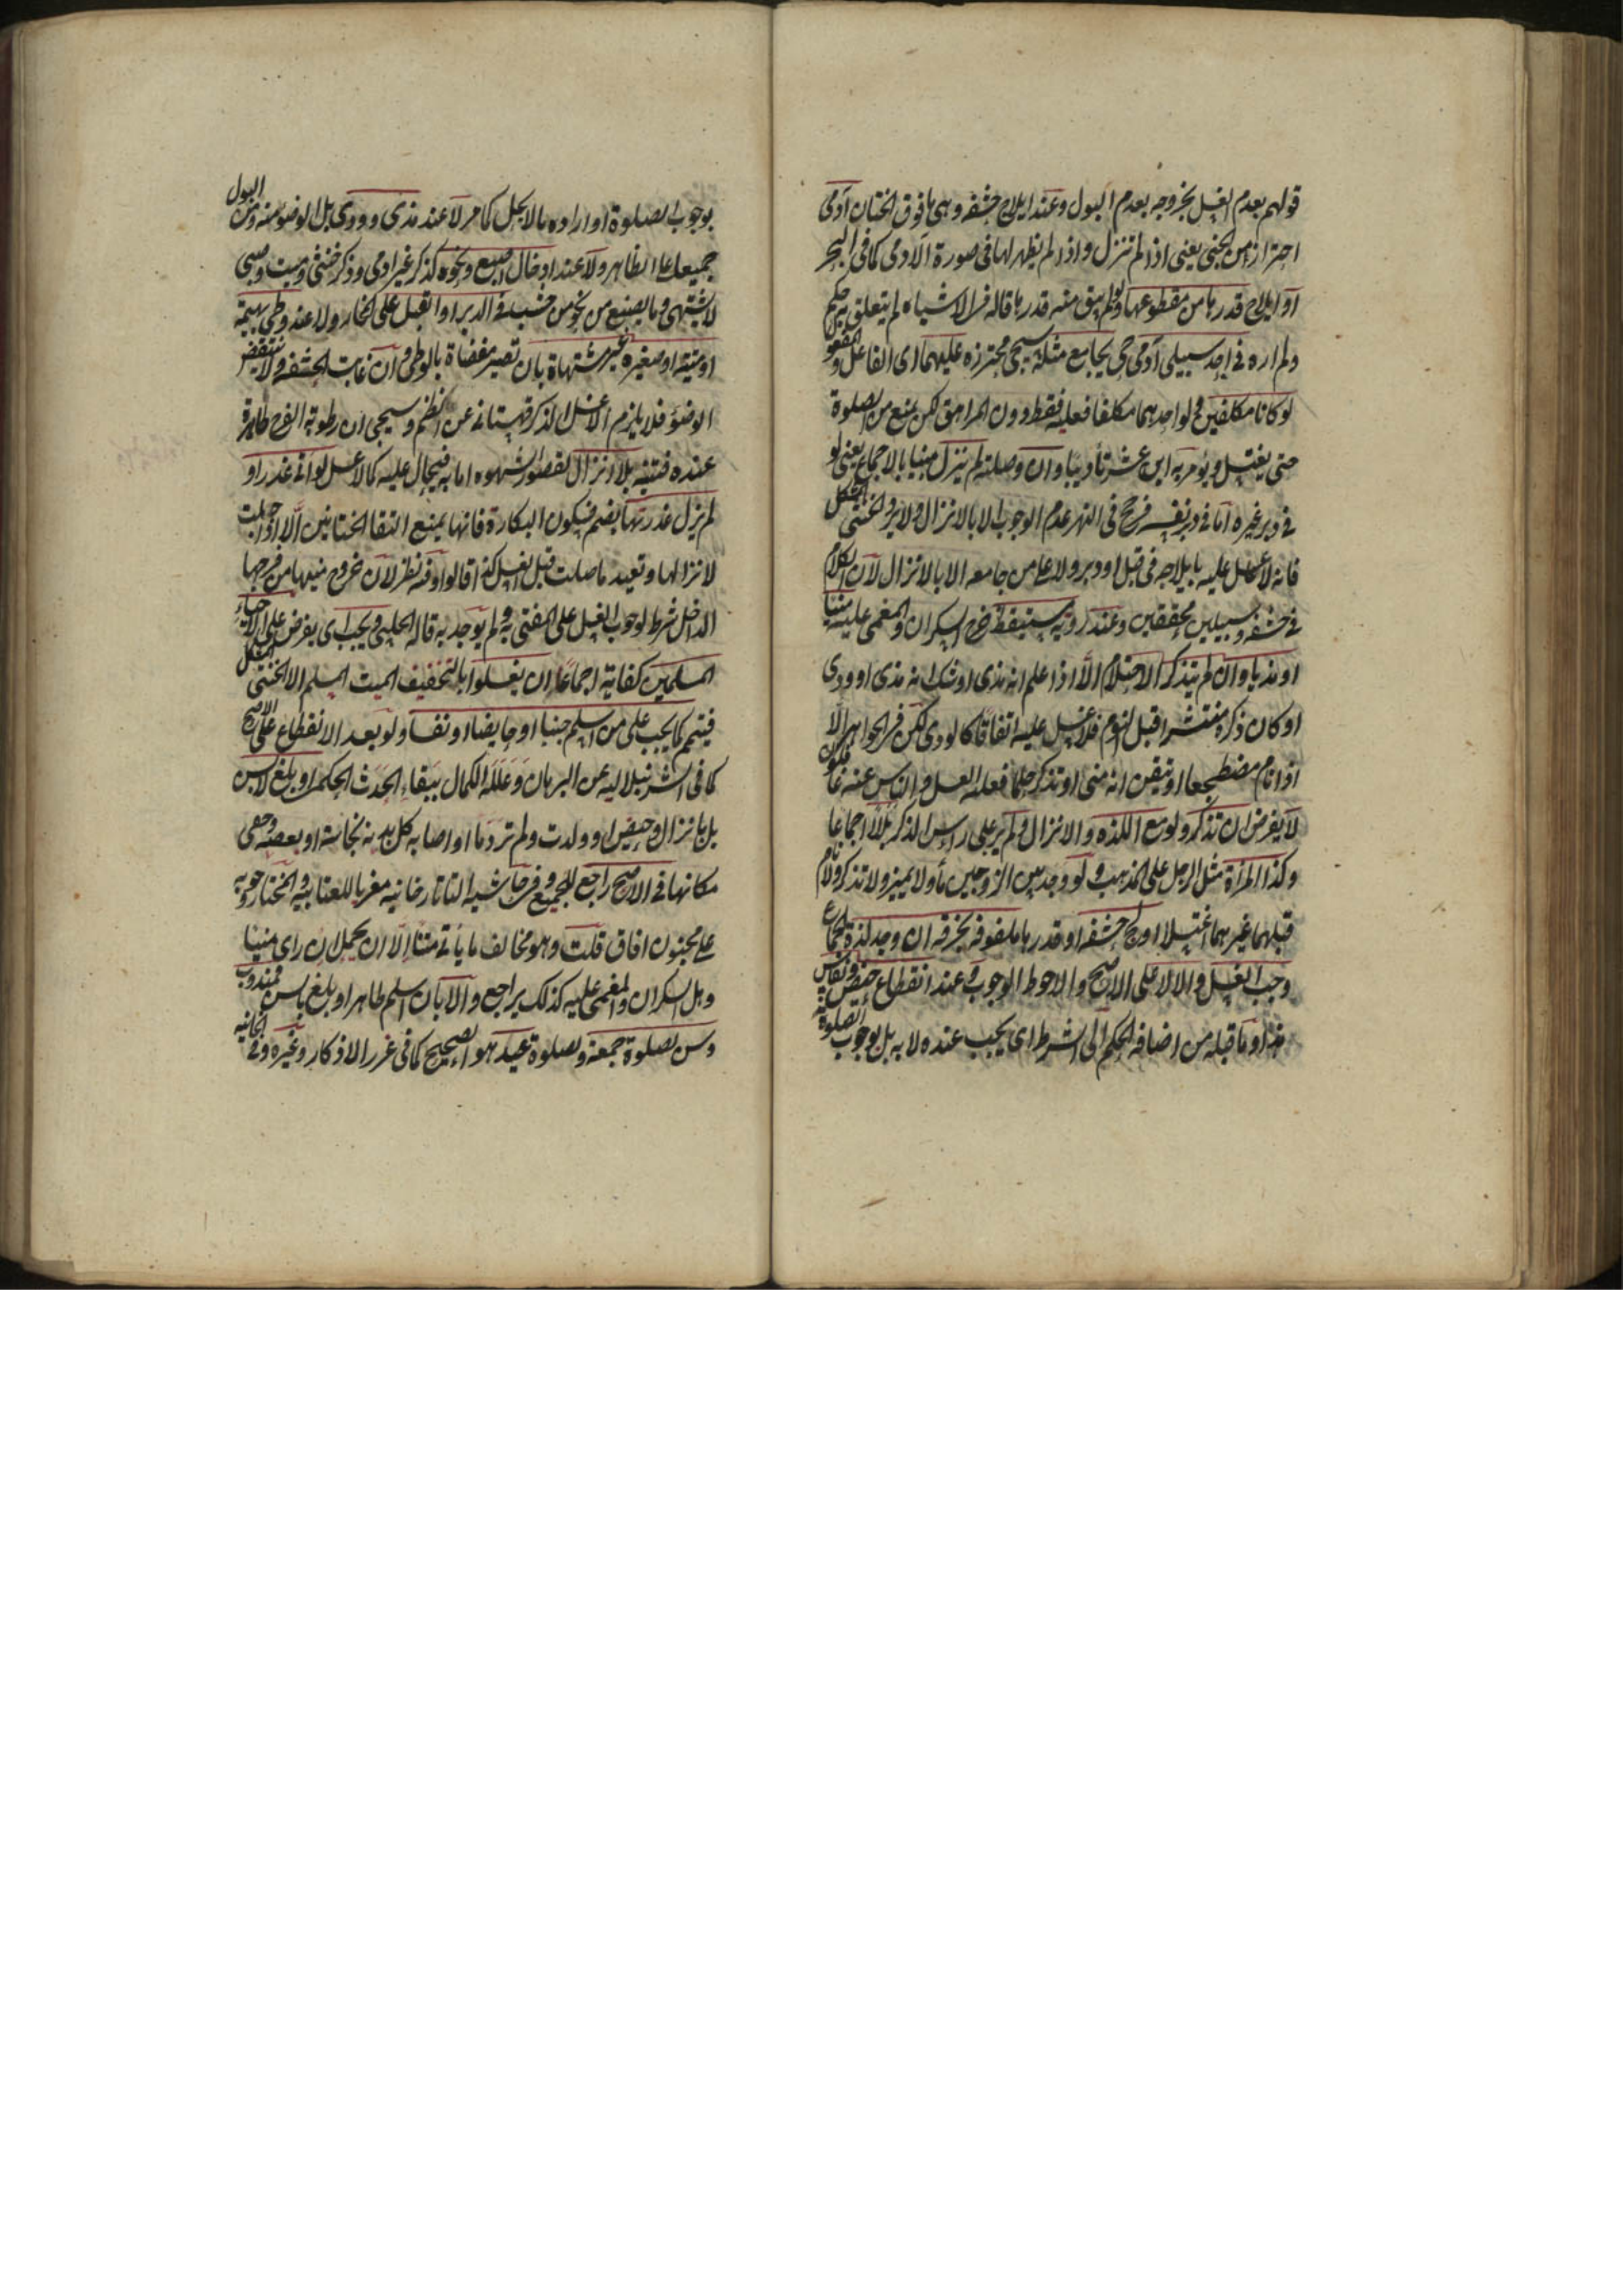 قولهم بعدم الغسل بخروجه بعدم البول وعند ايلاج حشفه وهى ما فوق الختان آدمى
احتراز من الجنى يعنى اذا لم تنزل واذا لم يظهر لها فى صورة الآدمى كما فى البحر
او ايلاج قدرها من مقطوعها ولو لم يبق منه قدرها قال فى الاشياه لم يتعلق به حكم
ولم اره فى احد سبيلى آدمى حى يجامع مثله سيجى محترزه عليهما اى الفاعل والمفعو
لو كانا مكلفين ولو احدهما مكلفا فعليه فقط دون المراهق لكن يمنع من الصلوة
حتى يغتسل ويؤمر به ابن عشر تأديبا وان وصلته لم ينزل منيا بالاجماع يعنى لو
فى دبر غيره اما فى دبر نفسه فرجح فى النهر عدم الوجوب الا بالانزال ولا يرد الخنثى المشكل
فانه لا غسل عليه بايلاجه فى قبل او دبر ولا على من جامعه الا بالانزال لان الكلام
فى حشفه وسبيلين محققين وعند روية مستيقظ خرج السكران والمغمى عليه منيا
او مذيا وان لم يتذكر الاحتلام الا اذا علم انه مذى او شك انه مذى او ودى
او كان ذكره منتشرا قبل النوم فلا غسل عليه اتفاقا كالودى لكن فى الجواهر الا
اذا نام مضطجعا او تيقن انه منى او تذكر حلما فعليه الغسل والناس عنه غافلون
لا يفرض ان تذكر ولو مع اللذه والانزال ولم ير على راس الذكر بللا اجماعا
وكذا المرأة مثل الرجل على المذهب ولو وجد بين الزوجين مأ ولا مميز ولا تذكر ولا نام
قبلهما غيرهما اغتسلا اولج حشفه او قدرها ملفوفه بخرقه ان وجد لذة الجماع
وجب الغسل والا لا على الاصح والاحوط الوجوب وعند انقطاع حيض ونفاس
هذا وما قبله من اضافه الحكم الى الشرط اى يجب عنده لا به بل بوجوب الصلوة
بوجوب الصلوة او ارادة ما لا يحل كما مر لا عند مذى وودى بل الوضؤ منه ومن البول
جميعا على الظاهر ولا عند ادخال اصبع ونحوه كذكر غير ادمى وذكر خنثى وميت وصبى
لا يشتهى وما يصنع من نحو من خشب فى الدبر او القبل على المختار ولا عند وطى بهيمة
او ميتة او صغيره غير مشتهاة بان تصير مفضاة بالوطى وان غابت الحشفه ولا ينتقض
الوضؤ فلا يلزم الا غسل الذكر قهستانى عن النظم وسيجى ان رطوبة الفرج طاهرة
عنده فتنبه بلا انزال لقصور الشهوه اما به فيحال عليه كما لا غسل لو اتى عذراء
لم يزل عذرتها بضم فسكون البكارة فانها يمنع التقا الختانين الا اذا حبلت
لانزالها وتعيد ما صلت قبل الغسل كذا قالوا وفيه نظر لان خروج منيها من فرجها
الداخل شرط لوجوب الغسل على المفتى به ولم يوجد به قاله الحلبى ويجب اى يفرض على الاحياء
المسلمين كفاية اجماعا ان يغسلوا بالتخفيف الميت المسلم الا الخنثى المشكل
فييمم كما يجب على من اسلم جنبا او حايضا او نفسا ولو بعد الانقطاع على الاصح
كما فى الشرنبلاليه عن البرهان وعلله الكمال ببقاء الحدث الحكمى او بلغ لا بسن
بل بانزال وحيض او ولدت ولم تر دما او اصابه كل بدنه نجاسة او بعضه وخفى
مكانها فى الاصح راجع للجميع وفى التاتارخانيه معزيا للعتابيه والمختار وجوبه
على مجنون افاق قلت وهو مخالف ما يأتى متنا الا ان يحمل ان راى منيا
وهل السكران والمغمى عليه كذلك يراجع والا بان اسلم طاهرا او بلغ بالسن فمندوب
وسن لصلوة جمعة ولصلوة عيد هو الصحيح كما فى غرر الاذكار وغيره وفى الخانيه